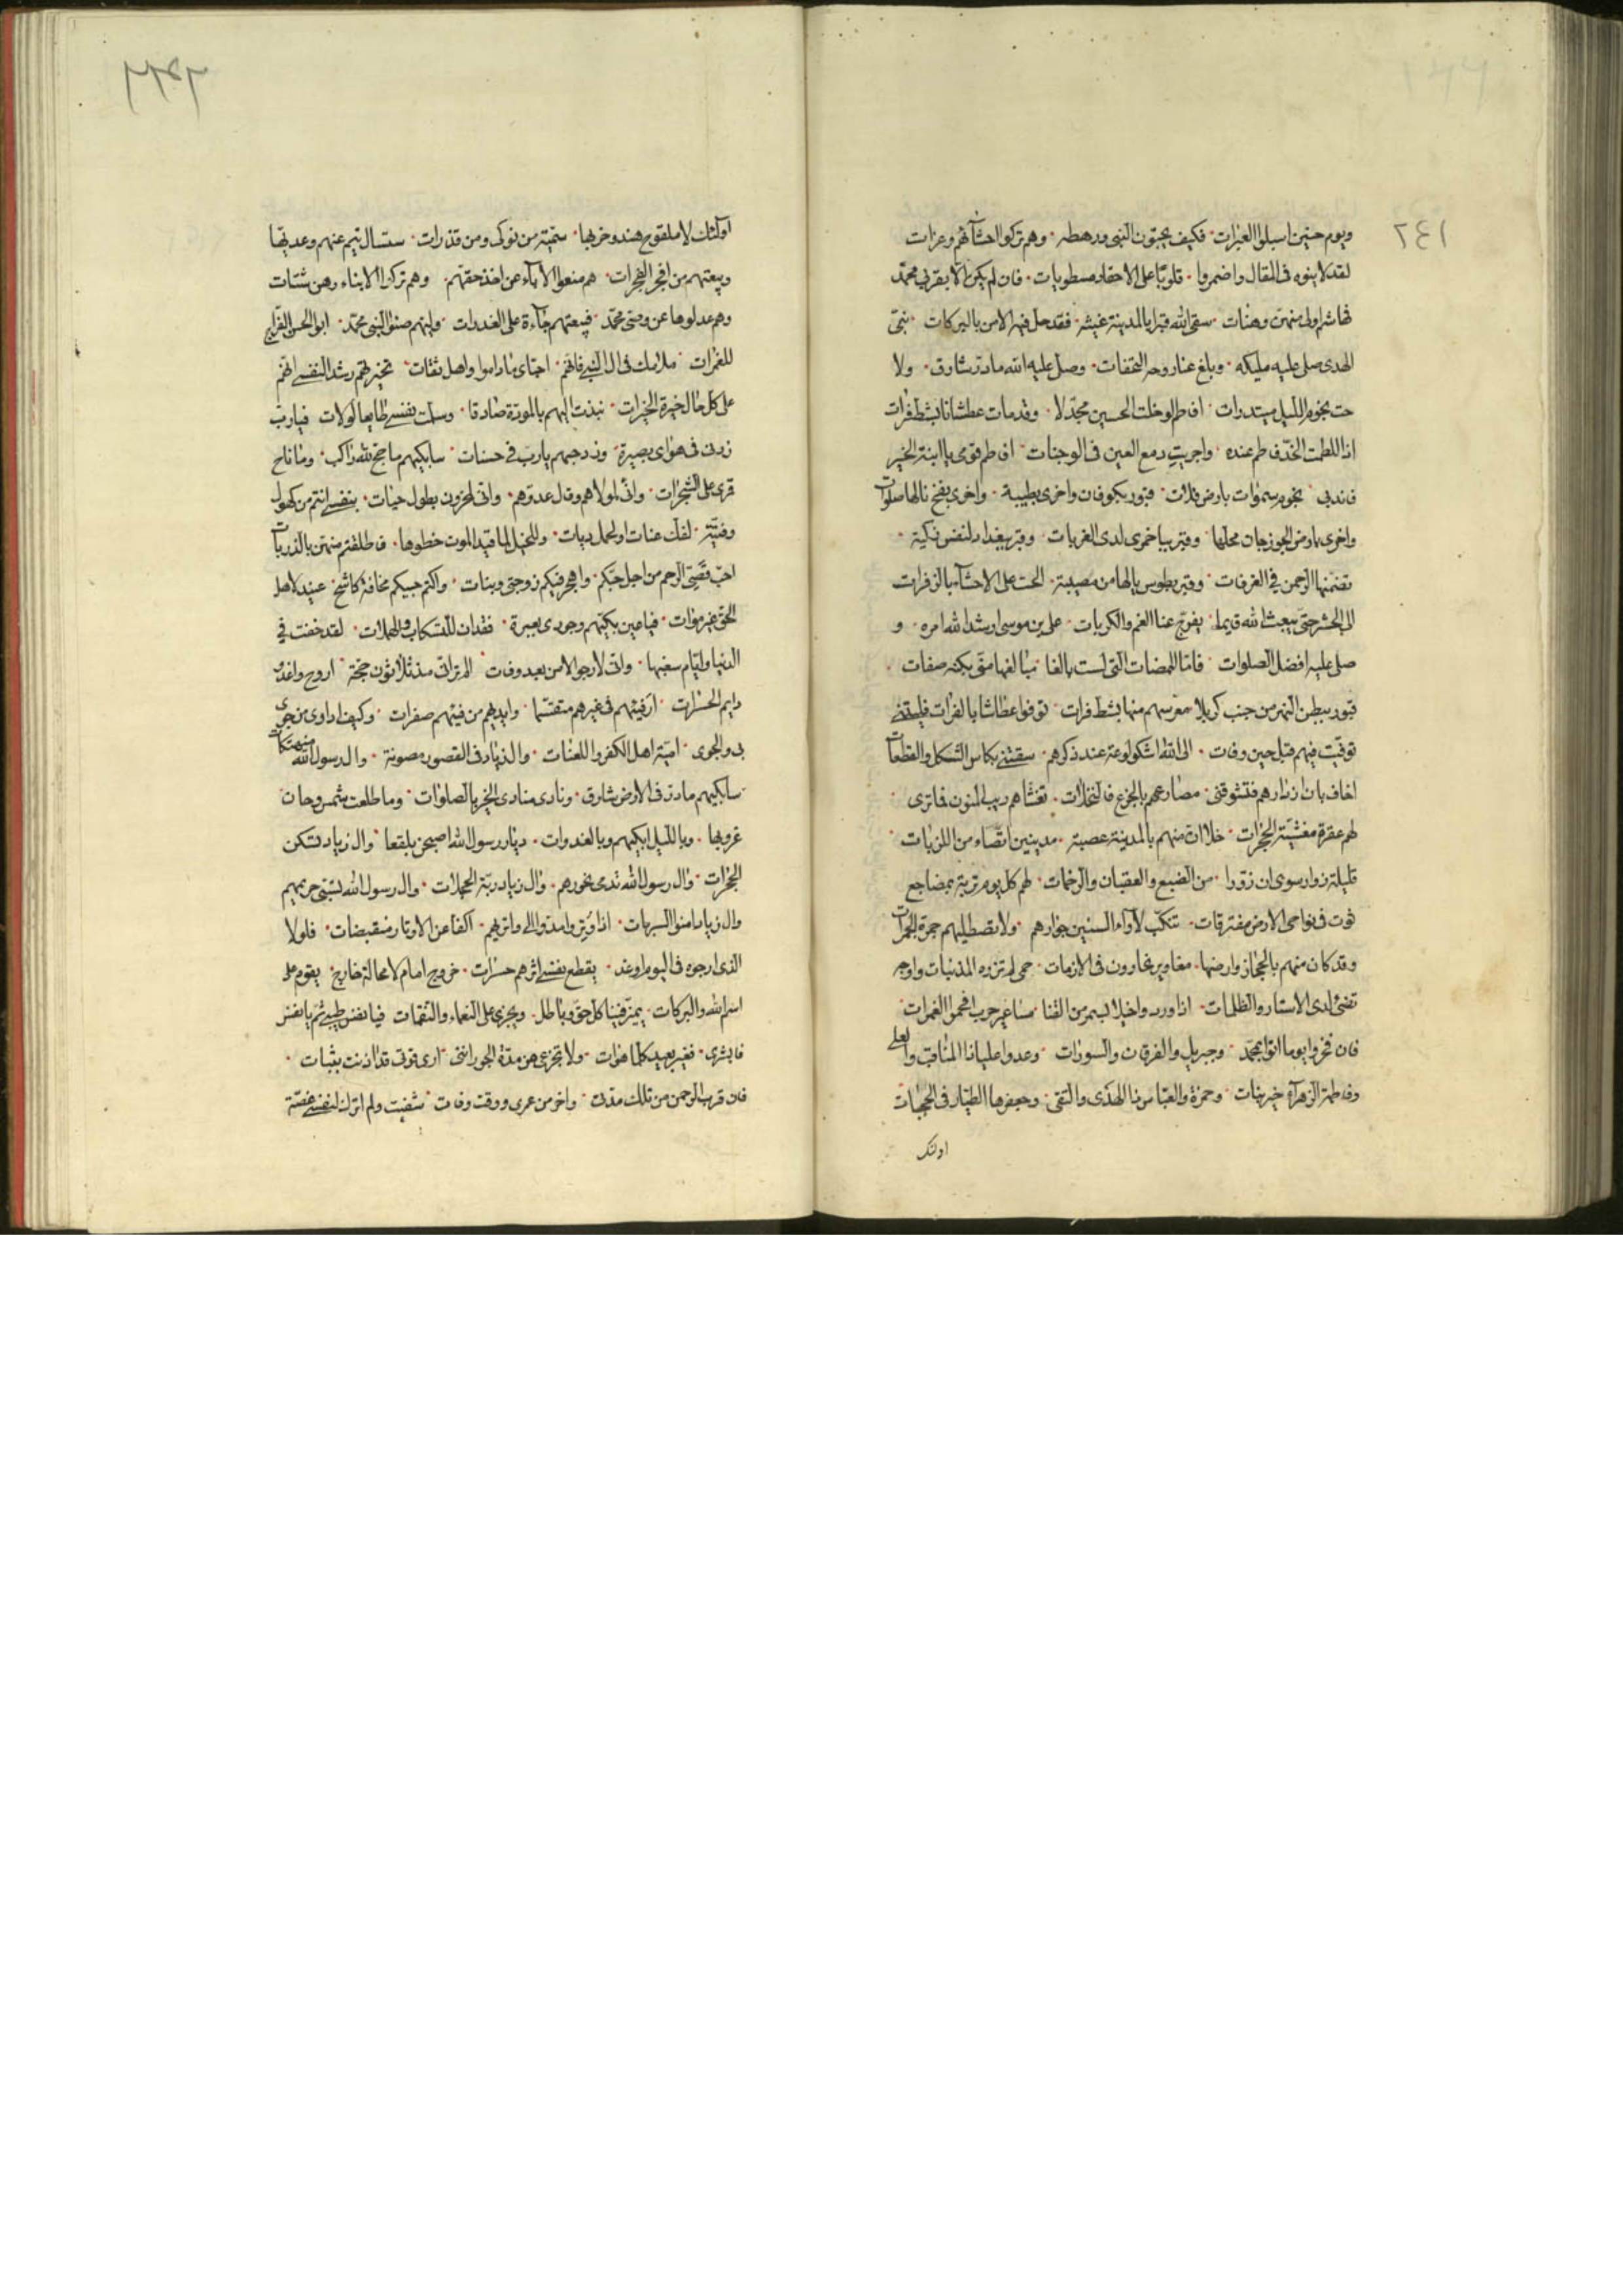 ٢٤١
ويوم حنين اسبلوا العبرات فكيف يحبون النبي ورهطه وهم تركوا احشائهم وغرات
لقد لاينوه في المقال واضمروا قلوبا على الاحقاد منطويات فان لم يكن الا بقربى محمد
فهاشم اولى من هن وهنات سقى الله قبرا بالمدينة غيثه فقد حل فيه الامن بالبركات نبي
الهدى صلى عليه مليكه وبلغ عنا روحه التحفات وصلى عليه الله ما ذر شارق ولا
حت نجوم الليل مبتدرات افاطم لو خلت الحسين مجدلا وقد مات عطشانا بشط فرات
اذا للطمت الخد فاطم عنده واجريت دمع العين في الوجنات افاطم قومي يا ابنة الخير
فاندبي نجوم سموات بارض فلات قبور بكوفان واخرى بطيبة واخرى بفخ نالها صلوات
واخرى بارض الجوزجان محلها وقبر بباخمرى لدى الغربات وقبر ببغداد لنفس زكية
تضمنها الرحمن في الغرفات وقبر بطوس يا لها من مصيبة الحت على الاحشاء بالزفرات
الى الحشر حتى يبعث الله قيما يفرج عنا الغم والكربات علي بن موسى ارشد الله امره و
صلى عليه افضل الصلوات فاما الممضات التي لست بالغا مبالغها مني بكنه صفات
قبور ببطن النهر من جنب كربلا معرسهم منها بشط فرات توفوا عطاشا بالفرات فليتني
توفيت فيهم قبل حين وفات الى الله اشكو لوعة عند ذكرهم سقتني بكاس الثكل والفظعات
اخاف بان ازدارهم فتشوقني مصارعهم بالجزع فالنخلات تغشاهم ريب المنون فما ترى
لهم عقرة مغشية الحجرات خلا ان منهم بالمدينة عصبة مدينين انضاء من اللزبات
قليلة زوار سوى ان زورا من الضبع والعقبان والرخمات لهم كل يوم تربة بمضاجع
ثوت في نواحي الارض مفترقات تنكب لاواء السنين جوارهم ولا تصطليهم جمرة الجمرات
وقد كان منهم بالحجاز وارضها مغاوير نحارون في الازمات حمى لم تزره المذنبات واوجه
تضئ لدى الاستار والظلمات اذا وردوا خيلا بسمر من القنا مساعير حرب اقحموا الغمرات
فان فخروا يوما اتوا بمحمد وجبريل والفرقان والسورات وعدوا عليا ذا المناقب والعلى
وفاطمة الزهراء خير بنات وحمزة والعباس ذا الهدى والتقى وجعفرها الطيار في الحجبات
اولئك
اولئك لا ملقوح هند وحزبها سمية من نوكى ومن قذرات ستسال تيم عنهم وعديها
وبيعتهم من افجر الفجرات هم منعوا الاباء عن اخذ حقهم وهم تركوا الابناء رهن شتات
وهم عدلوها عن وصي محمد فبيعتهم جاءة على الغدرات وليهم صنو النبي محمد ابو الحسن الفراج
للغمرات ملامك في ال النبي فانهم احباي ما داموا واهل ثقات تخيرتهم رشد النفسي انهم
على كل حال خيرة الخيرات نبذت اليهم بالمودة صادقا وسلمت نفسي طايعا لولات فيا رب
زدني في هواي بصيرة وزد حبهم يا رب في حسنات سابكيهم ما حج لله راكب وما ناح
قمرى على الشجرات واني لمولاهم وقال عدوهم واني لمحزون بطول حيات بنفسي انتم من كهول
وفتية لفك عنات او لحمل ديات وللخيل لما قيد الموت خطوها فاطلقتم منهن بالذربات
احب قصي الرحم من اجل حبكم واهجر فيكم زوجتي وبنات واكتم حبيكم مخافة كاشح عنيد لاهل
الحق غير موات فيا عين بكيهم وجودى بعبرة فقد ان للتسكاب والهملات لقد خفت في
الدنيا وايام سعيها واني لارجو الامن بعد وفات الم تر اني مذ ثلاثون حجة اروح واغدو
دايم الحسرات ارى فيئهم في غيرهم متقسما وايديهم من فيئهم صفرات وكيف اداوى من جوى
بي والجوى امية اهل الكفر واللعنات وال زياد في القصور مصونة وال رسول الله منهتكات
سابكيهم ما ذر في الارض شارق ونادى منادى الخير بالصلوات وما طلعت شمس وحان
غروبها وبالليل ابكيهم وبالغدوات ديار رسول الله اصبحن بلقعا وال زياد تسكن
الحجرات وال رسول الله تدمى نحورهم وال زياد ربة الحجلات وال رسول الله تسبى حريمهم
وال زياد امنوا السربات اذا وتروا مدوا الى واتريهم اكفا عن الاوتار منقبضات فلولا
الذى ارجوه في اليوم او غد يقطع نفسي اثرهم حسرات خروج امام لا محالة خارج يقوم على
اسم الله والبركات يميز فينا كل حق وباطل ويجزى على النعماء والنقمات فيا نفس طيبي ثم يا نفس
فابشرى فغير بعيد كلما هوات ولا تجزعي من مدة الجور انني ارى قوتي قد اذنت بثبات
فان قرب الرحمن من تلك مدتي واخر من عمرى ووقت وفات شفيت ولم اترك لنفسي غصة